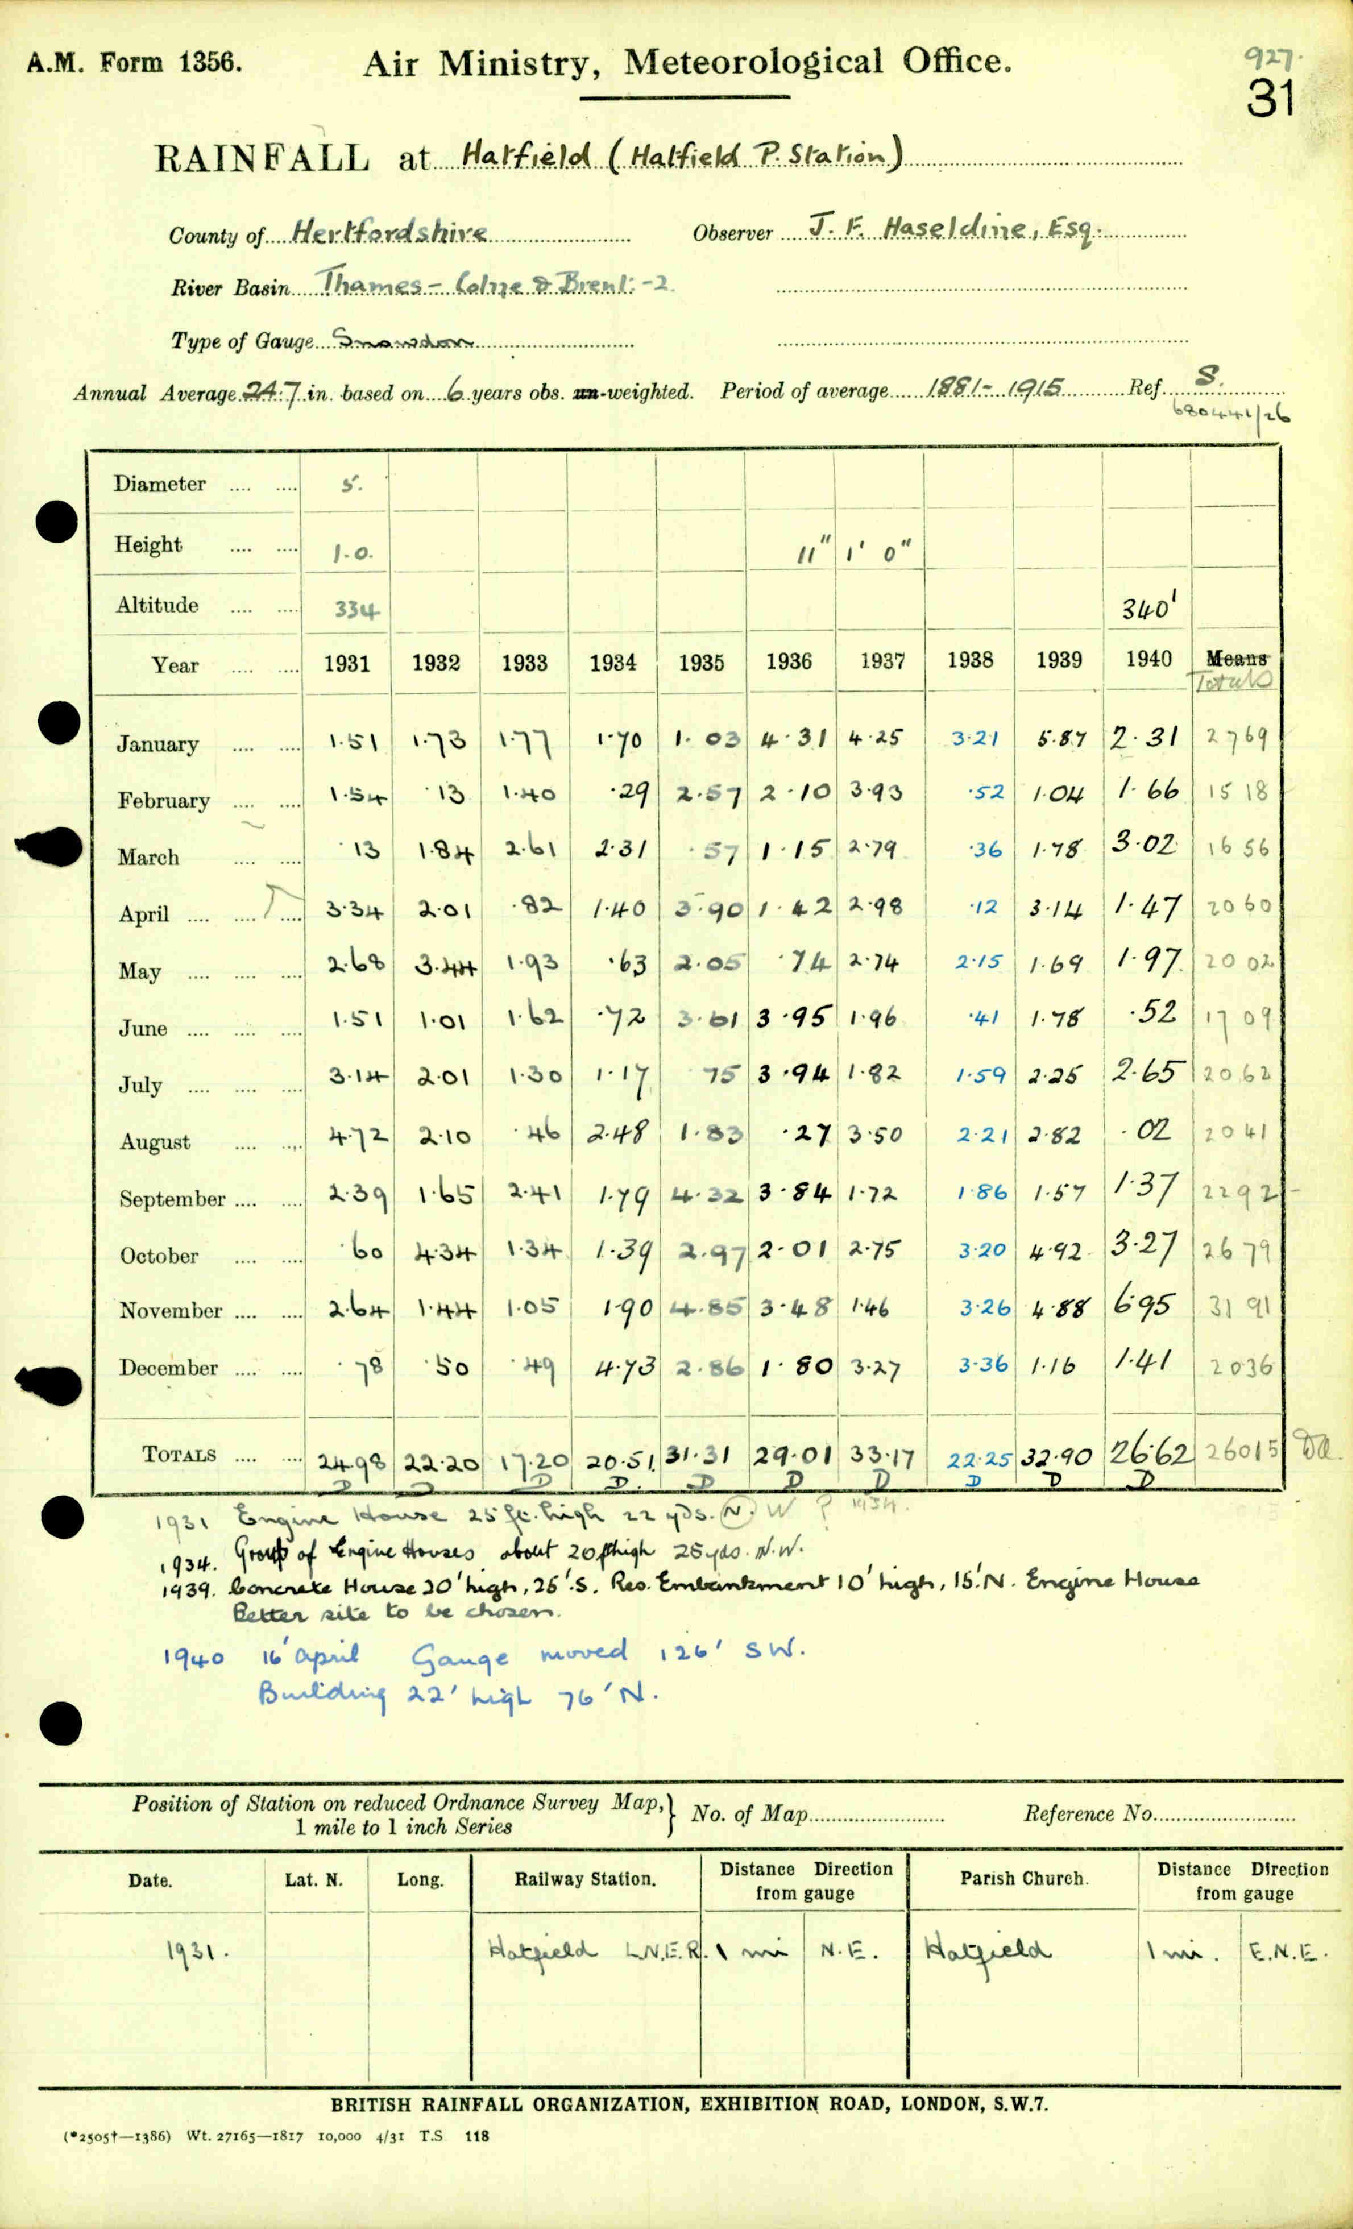 927.
A.M. Form 1356. Air Ministry, Meteorological Office.
31
RAINFALL at Hatfield (Hatfield P. Station)
County of Hertfordshire Observer J. F. Haseldine, Esq.
River Basin Thames - Colne & Brent -2
Type of Gauge Snowdon
Annual Average 24.7 in. based on 6 years obs. un-weighted. Period of average 1881-1915 Ref. S.
680441/26
Diameter .... .... 5.
Height .... .... 1.0. 11" 1' 0"
Altitude .... .... 334 340'
Year .... .... 1931 1932 1933 1934 1935 1936 1937 1938 1939 1940 Means
Totals
January .... .... 1.51 1.73 1.77 1.70 1.03 4.31 4.25 3.21 5.87 2.31 27 69
February .... .... 1.54 .13 1.40 .29 2.57 2.10 3.93 .52 1.04 1.66 15 18
March .... .... .13 1.84 2.61 2.31 .57 1.15 2.79 .36 1.78 3.02 16 56
April .... .... .... 3.34 2.01 .82 1.40 3.90 1.42 2.98 .12 3.14 1.47 20 60
May .... .... .... 2.68 3.44 1.93 .63 2.05 .74 2.74 2.15 1.69 1.97 20 02
June .... .... .... 1.51 1.01 1.62 .72 3.61 3.95 1.96 .41 1.78 .52 17 09
July .... .... .... 3.14 2.01 1.30 1.17 75 3.94 1.82 1.59 2.25 2.65 20 62
August .... .... 4.72 2.10 .46 2.48 1.83 .27 3.50 2.21 2.82 .02 20 41
September .... .... 2.39 1.65 2.41 1.79 4.32 3.84 1.72 1.86 1.57 1.37 22 92
October .... .... .60 4.34 1.34 1.39 2.97 2.01 2.75 3.20 4.92 3.27 26 79
November .... .... 2.64 1.44 1.05 1.90 4.85 3.48 1.46 3.26 4.88 6.95 31 91
December .... .... .78 .50 .49 4.73 2.86 1.80 3.27 3.36 1.16 1.41 20 36
TOTALS .... .... 24.98 22.20 17.20 20.51 31.31 29.01 33.17 22.25 32.90 26.62 260 15
D D D D. D D D D D D
1931 Engine House 25 ft. high 22 yds. N. W ? 1934.
1934. Group of Engine Houses about 20ft high 25 yds. N.W.
1939. Concrete House 20' high, 25'.S. Res. Embankment 10' high, 15'.N. Engine House
Better site to be chosen.
1940 16' April Gauge moved 126' SW.
Building 22' high 76' N.
Position of Station on reduced Ordnance Survey Map, } No. of Map Reference No.
1 mile to 1 inch Series
Date. Lat. N. Long. Railway Station. Distance Direction from gauge Parish Church. Distance Direction from gauge
1931. Hatfield L.N.E.R. 1 mi N.E. Hatfield 1 mi. E.N.E.
BRITISH RAINFALL ORGANIZATION, EXHIBITION ROAD, LONDON, S.W.7.
(*2505†—1386) Wt. 27165—1817 10,000 4/31 T.S 118